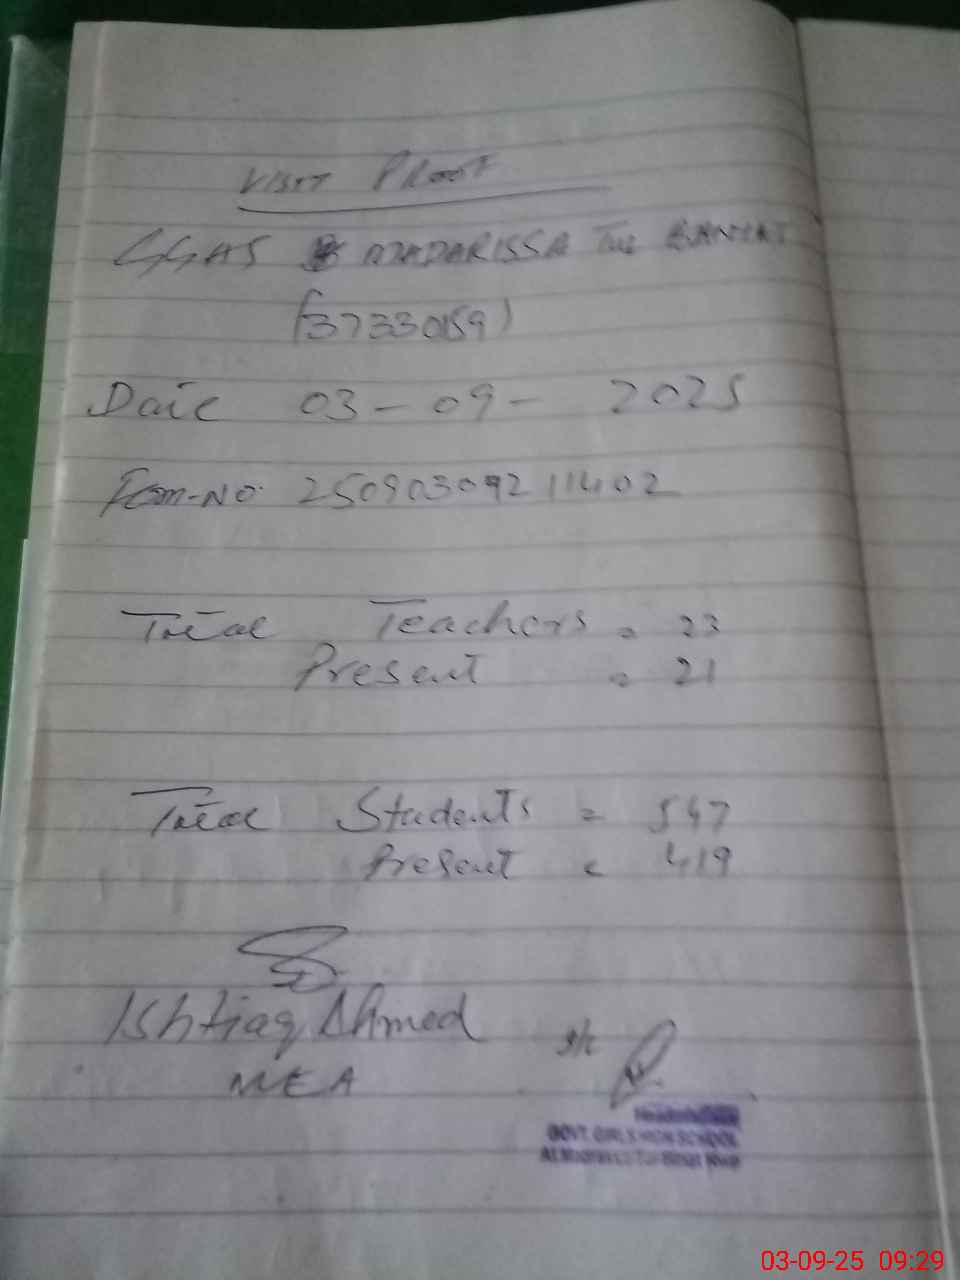 VISIT PROOF
GGHS MADARISSA TUL BANAAT
(37330159)
Date 03-09-2025
Form-No. 25090309211402
Total Teachers = 23
Present = 21
Total Students = 547
Present = 419
Ishtiaq Ahmed
MEA
S/C
GOVT. GIRLS HIGH SCHOOL
03-09-25 09:29